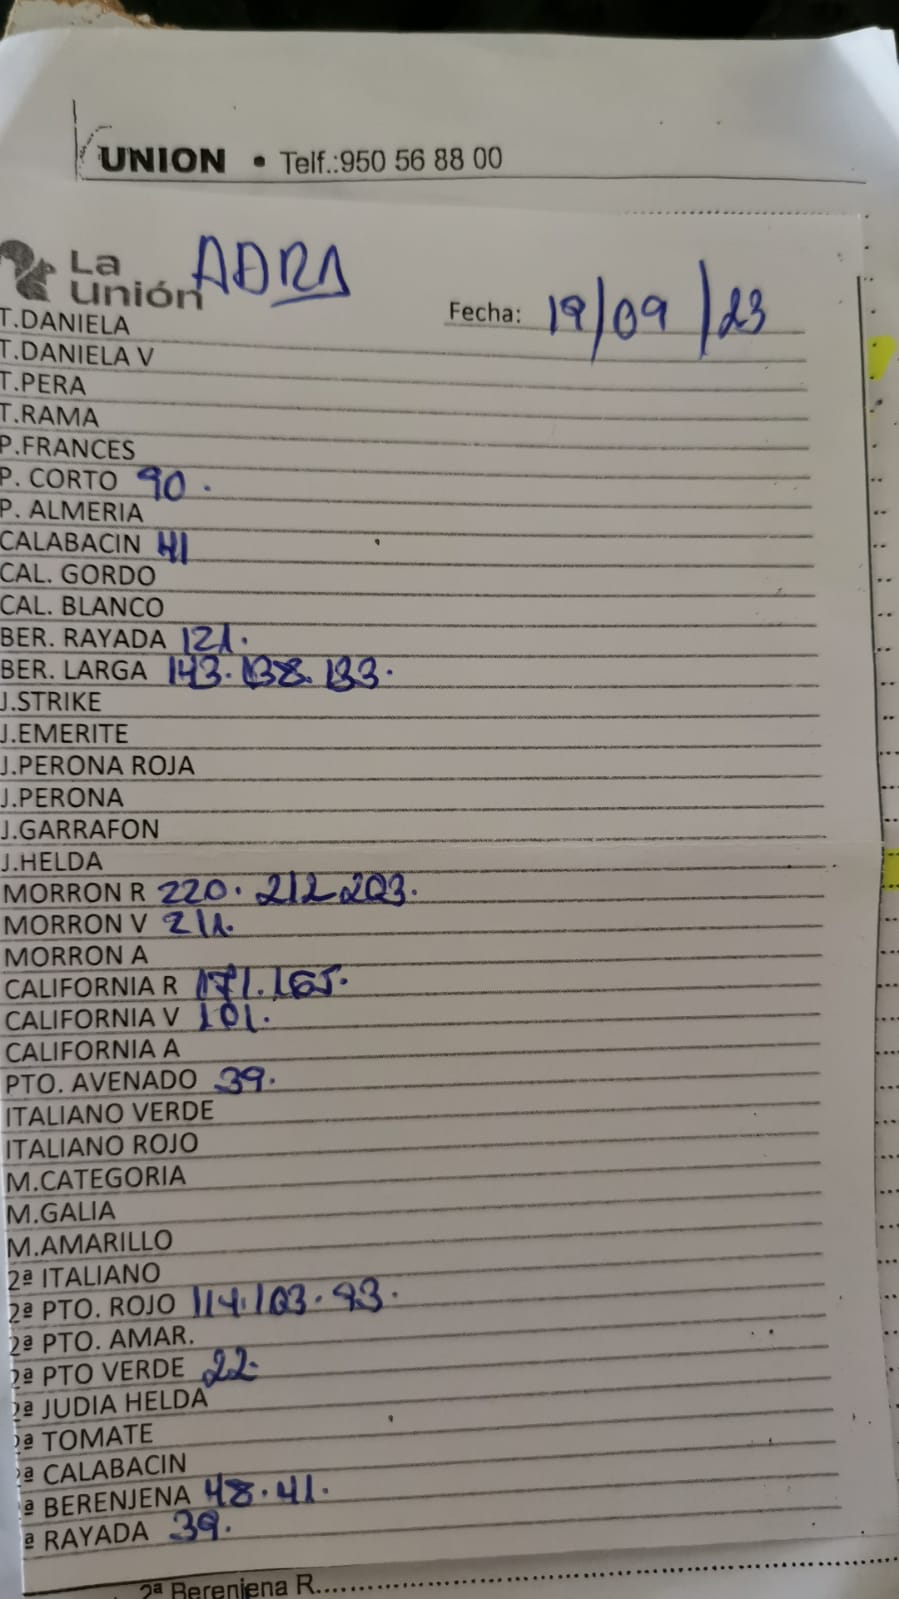 UNION • Telf.:950 56 88 00
La Unión ADRA
Fecha: 19/09/23
T.DANIELA
T.DANIELA V
T.PERA
T.RAMA
P.FRANCES
P. CORTO 90.
P. ALMERIA
CALABACIN 41
CAL. GORDO
CAL. BLANCO
BER. RAYADA 121.
BER. LARGA 143. 138. 133.
J.STRIKE
J.EMERITE
J.PERONA ROJA
J.PERONA
J.GARRAFON
J.HELDA
MORRON R 220. 212 203.
MORRON V 211.
MORRON A
CALIFORNIA R 171. 165.
CALIFORNIA V 101.
CALIFORNIA A
PTO. AVENADO 39.
ITALIANO VERDE
ITALIANO ROJO
M.CATEGORIA
M.GALIA
M.AMARILLO
2ª ITALIANO
2ª PTO. ROJO 114. 103. 93.
2ª PTO. AMAR.
2ª PTO VERDE 22.
ª JUDIA HELDA
ª TOMATE
ª CALABACIN
ª BERENJENA 48. 41.
ª RAYADA 39.
2ª Berenjena R...............................................